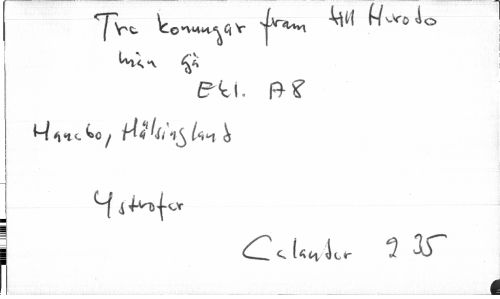 Tre konungar fram till Herodo
män gå
Ekl. A8
Hanebo, Hälsingland
4 strofer
Calander 235